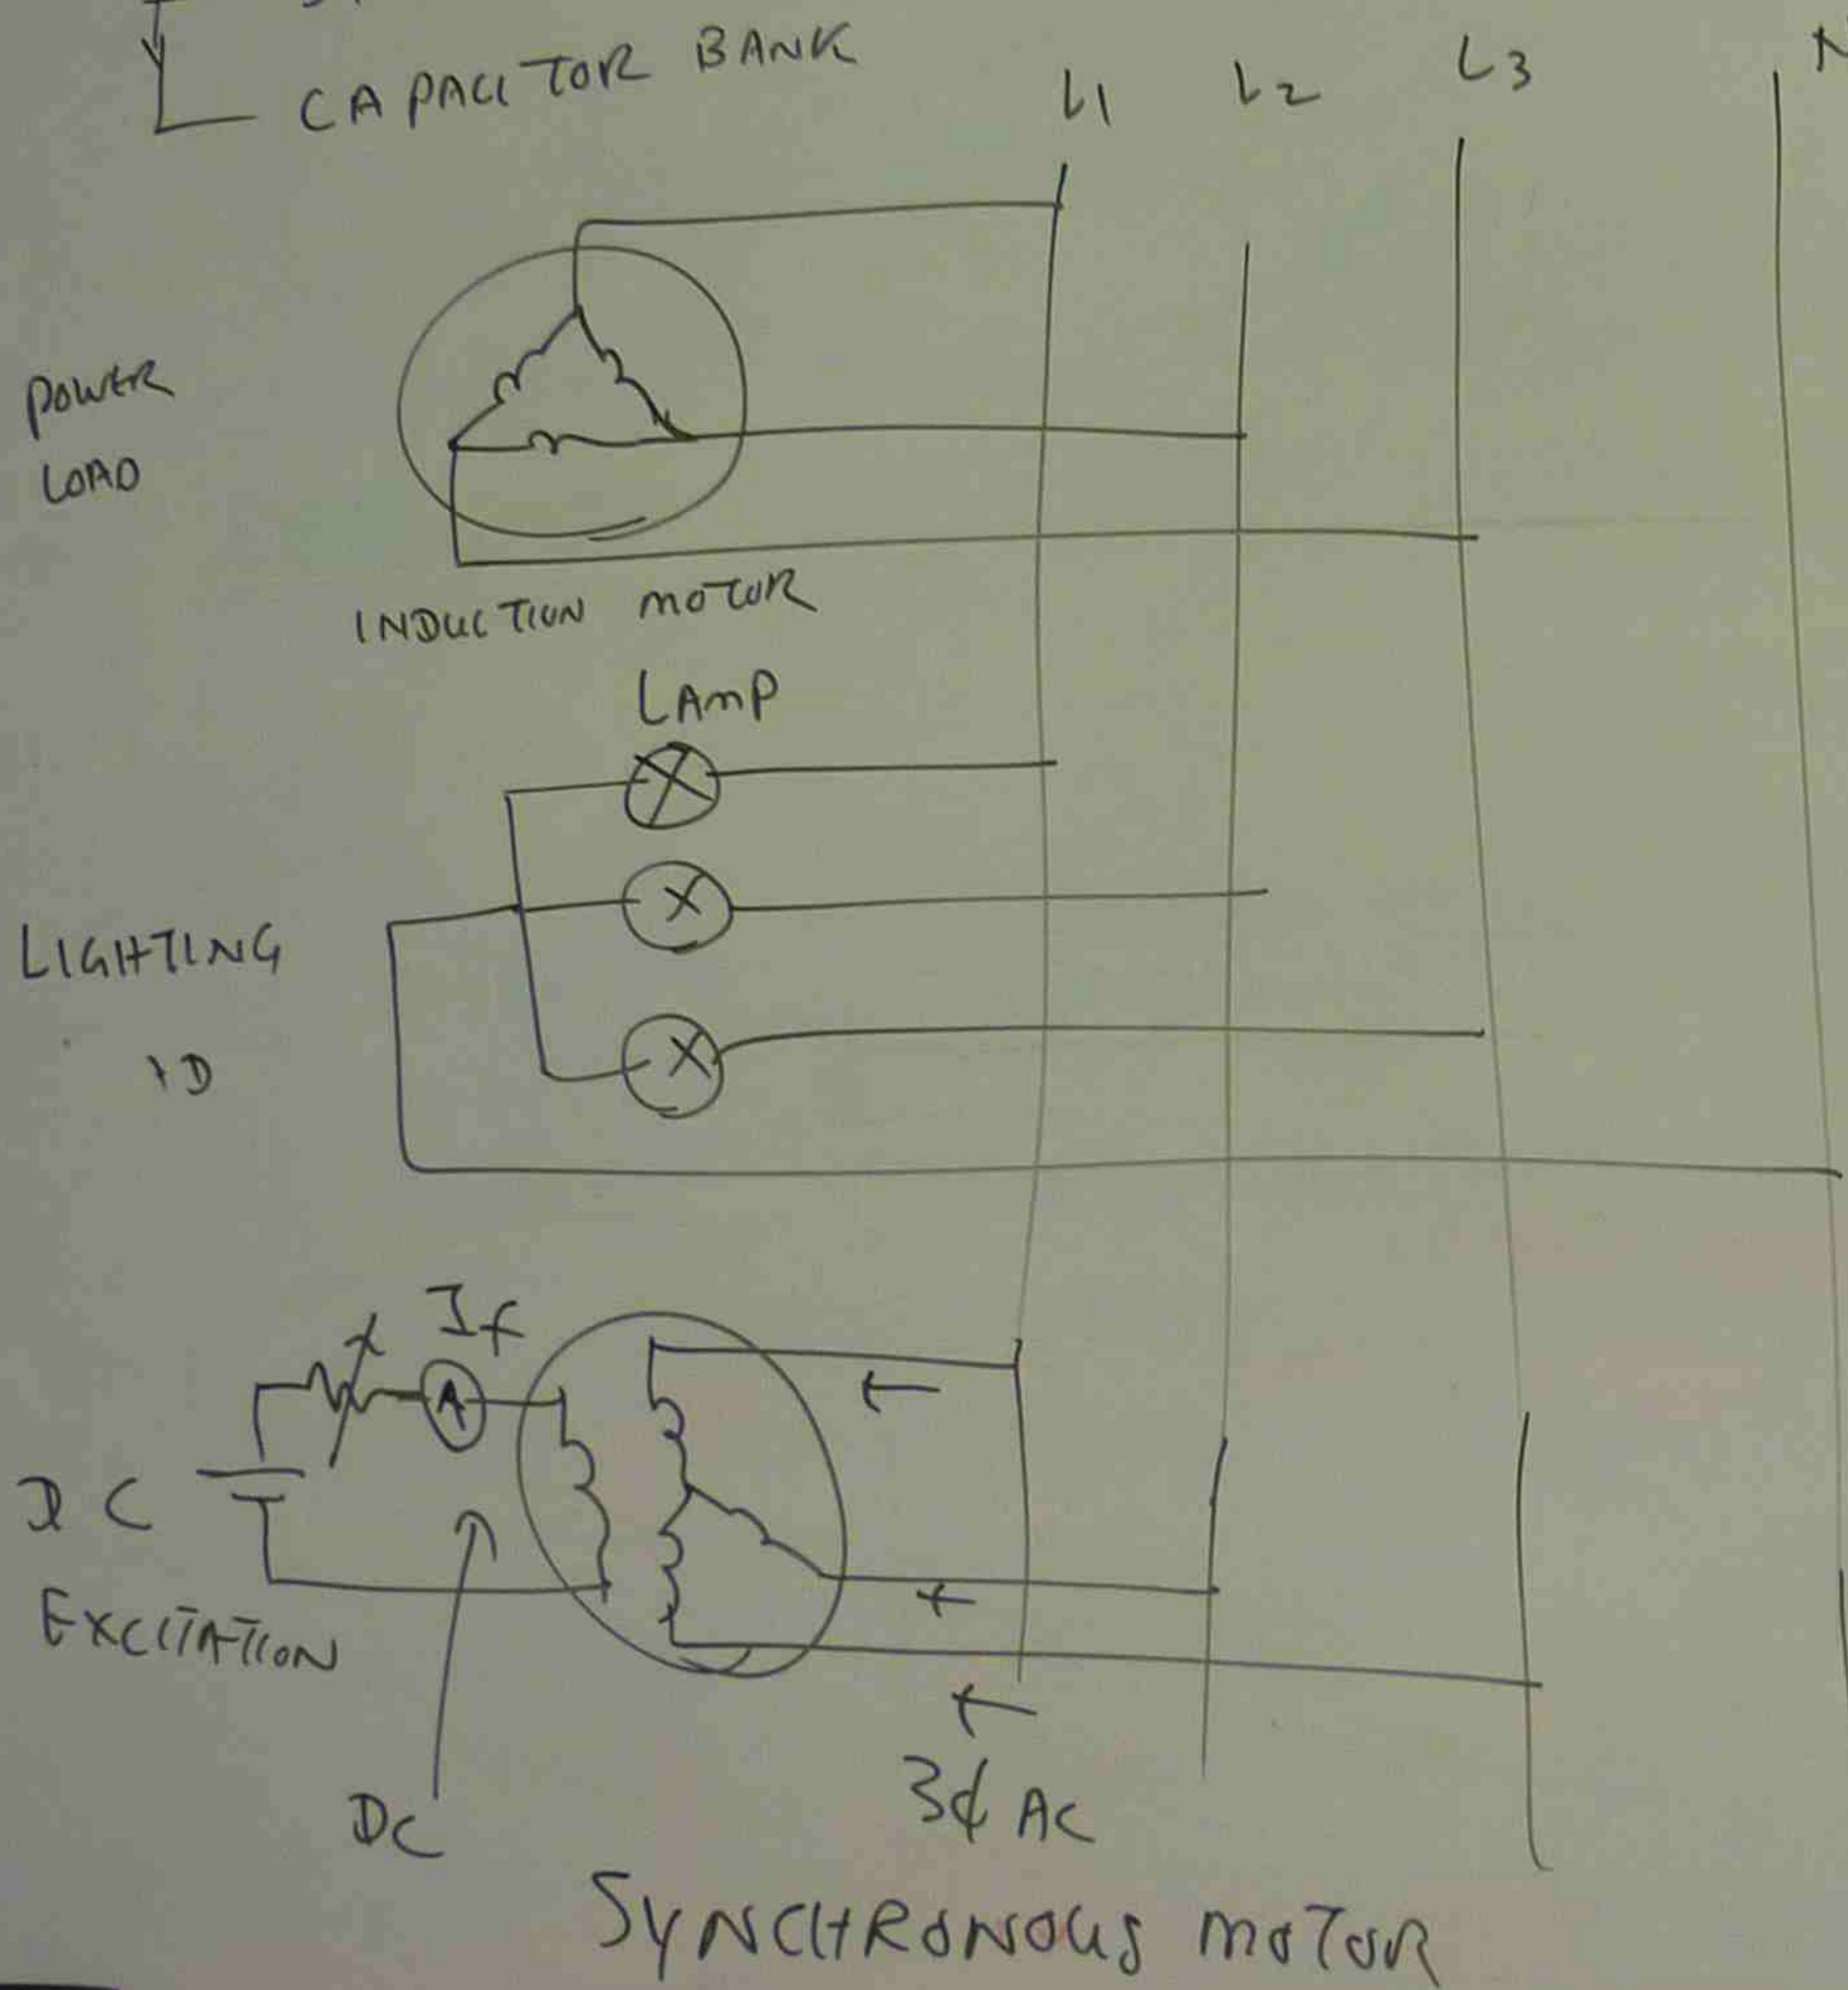 CAPACITOR BANK
L1 L2 L3
POWER
LOAD
INDUCTION MOTOR
LAMP
LIGHTING
If
A
DC
EXCITATION
DC
3ϕ AC
SYNCHRONOUS MOTOR